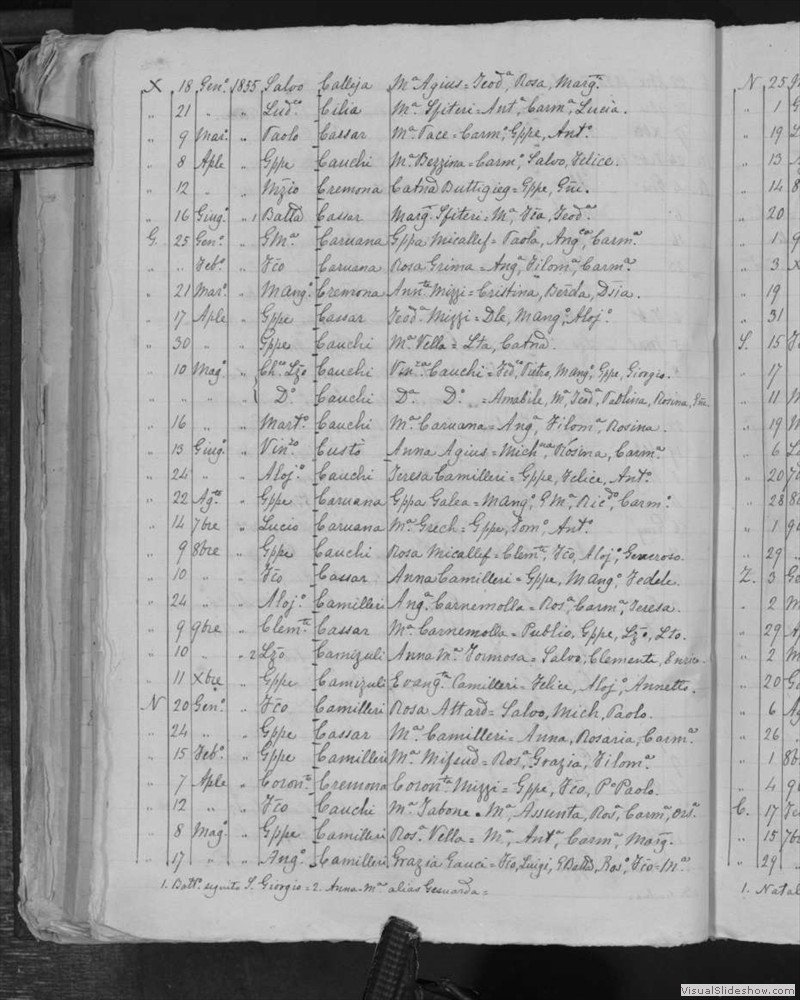 X 18 Genº 1855 Salvo Calleja Mª Agius = Teodª, Rosa, Margª.
„ 21 „ „ Ludº Cilia Mª Spiteri = Antª, Carmª, Lucia.
„ 9 Marº „ Paolo Cassar Mª Pace = Carmª, Gppe, Antº.
„ 8 Aple „ Gppe Cauchi Mª Bezzina = Carmº, Salvo, Felice.
„ 12 „ „ Nizio Cremona Catna Buttigieg = Gppe, Gni.
„ 16 Giugº „ 1 Batta Cassar Margª Spiteri = Mª, Fca, Teodª.
G. 25 Genº „ G Mª Caruana Gppa Micallef = Paola, Angca, Carmª.
„ „ Febº „ Fco Caruana Rosa Grima = Angª, Filomª, Carmª.
„ 21 Marº „ M Angº Cremona Annta Mizzi = Cristina, Berda, Dsia.
„ 17 Aple „ Gppe Cassar Teodª Mizzi = Dle, M Angº, Alojº.
„ 30 „ „ Gppe Cauchi Mª Vella = Lta, Catna.
„ 10 Magº „ Chco Lzo Cauchi Vinza Cauchi = Fdco, Pietro, M Angº, Gppe, Giorgio.
„ „ „ „ Dº Cauchi Dª Dº = Amabile, Mª, Teodª, Paolina, Rosina,
„ 16 „ „ Martº Cauchi Mª Caruana = Angª, Filomª, Rosina.
„ 13 Giugº „ Vinzo Custò Anna Agius = Michna, Rosina, Carmª.
„ 24 „ „ Alojº Cauchi Teresa Camilleri = Gppe, Felice, Antº.
„ 22 Agto „ Gppe Caruana Gppa Galea = M Angº, G Mª, Ricdo, Carmº.
„ 14 7bre „ Lucio Caruana Mª Grech = Gppe, Tomº, Antº.
„ 9 8bre „ Gppe Cauchi Rosa Micallef = Clemte, Fco, Alojº, Generoso.
„ 10 „ „ Fco Cassar Anna Camilleri = Gppe, M Angº, Fedele.
„ 24 „ „ Alojº Camilleri Angª Carnemolla = Rosª, Carmª, Teresa.
„ 9 9bre „ Clemte Cassar Mª Carnemolla = Publio, Gppe, Lzo, Lto.
„ 10 „ „ 2 Lzo Camizuli Anna Mª Formosa = Salvo, Clemente, Enrico
„ 11 Xbre „ Gppe Camizuli Evangta Camilleri = Felice, Alojº, Annetto.
N 20 Genº „ Fco Camilleri Rosa Attard = Salvo, Mich, Paolo.
„ 24 „ „ Gppe Cassar Mª Camilleri = Anna, Rosaria, Carmª.
„ 15 Febº „ Gppe Camilleri Mª Mifsud = Rosª, Grazia, Filomª.
„ 7 Aple „ Coronto Cremona Coronta Mizzi = Gppe, Fco, Pº Paolo.
„ 12 „ „ Fco Cauchi Mª Tabone = Mª, Assunta, Rosª, Carmª, Orsª.
„ 8 Magº „ Gppe Camilleri Rosª Vella = Mª, Antª, Carmª, Margª.
„ 17 „ „ Angº Camilleri Grazia Gauci = Fco, Luigi, G Batta, Rosª, Fco Mª
1. Battª seguito S. Giorgio = 2. Anna Mª alias Gesuarda =
N 25
„ 1 G
„ 19 L
„ 13 A
„ 14 8
„ 20
„ 1 9
„ 3 X
„ 19
„ 31
S. 15 Fe
„ 17
„ 11 M
„ 19 M
„ 6
„ 20 7b
„ 28 8b
„ 1 9b
„ 29 „
Z. 3 Ge
„ 2 M
„ 29 A
„ 2 M
„ 20 Gi
„ 6 Ag
„ 26
„ 1 8b
„ 4 9b
C. 17 Fe
„ 15 7b
„ 29 „
1. Natal
VisualSlideshow.com